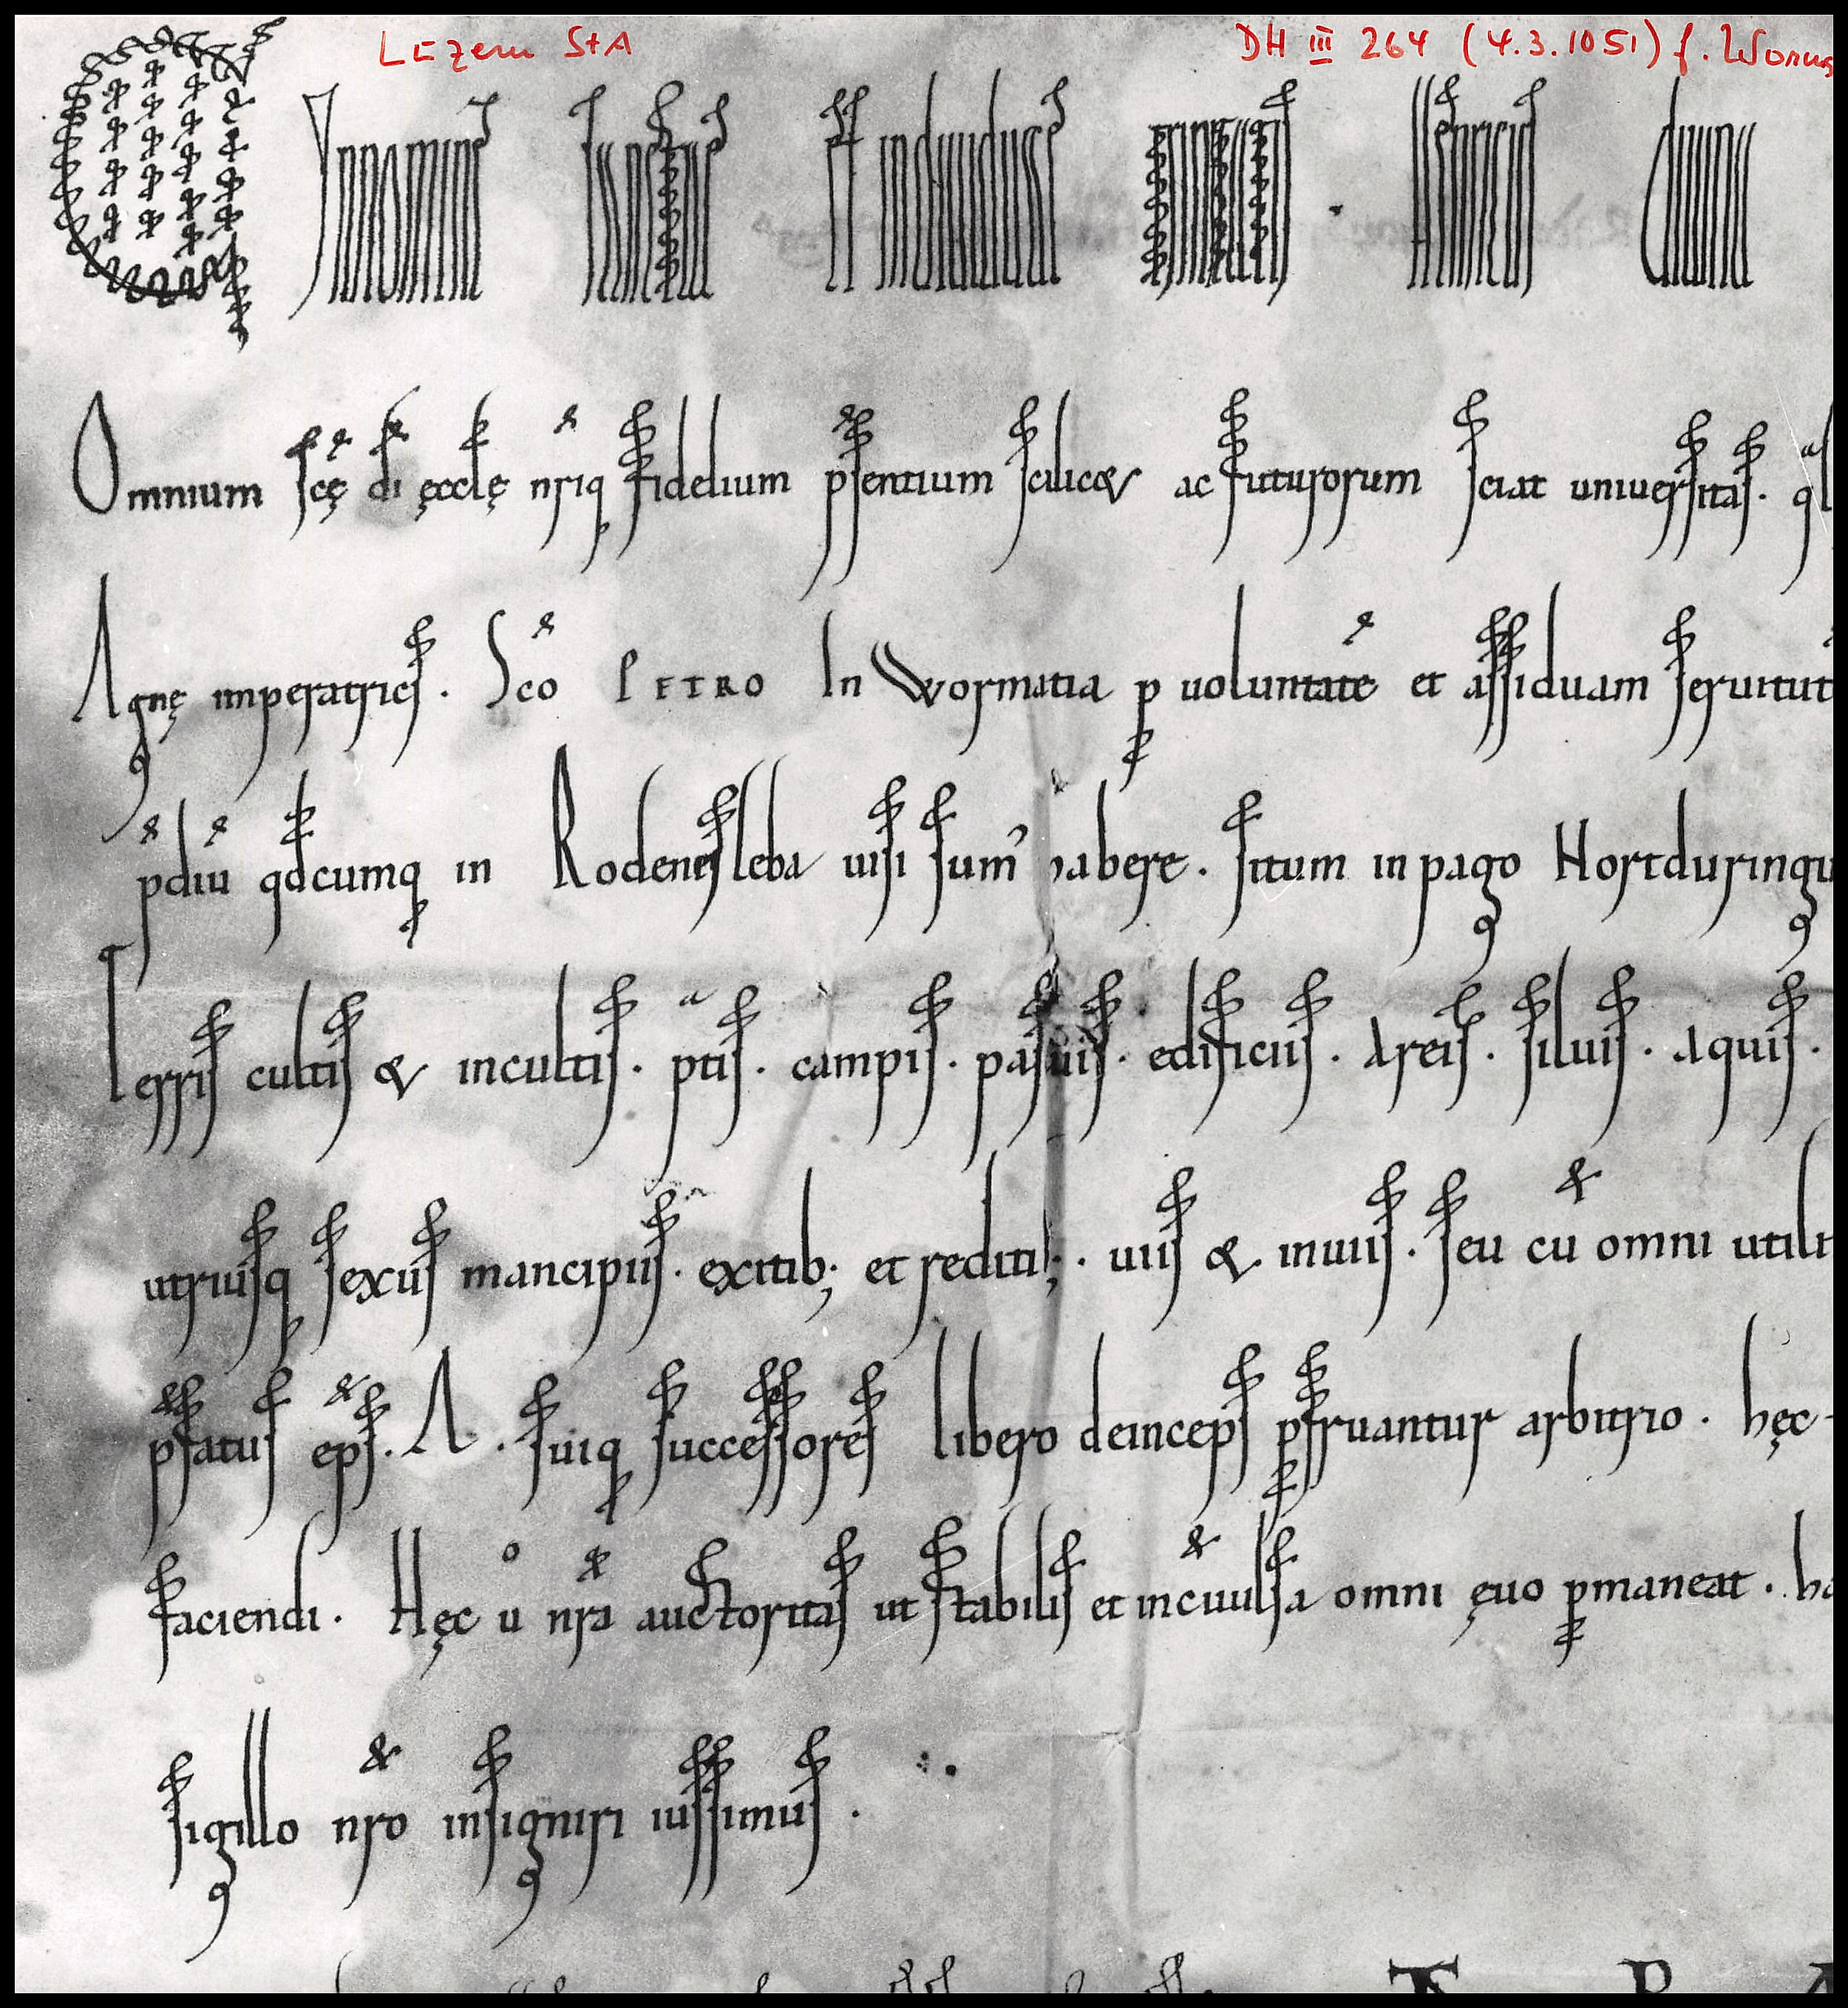 LUzern StA DH III 264 (4.3.1051) f. Worms
In nomine sanctę et indiuiduę trinitatis . Heinricus diuina
Omnium scę di ęcclę nrıq fidelium psentium scilicet ac futurorum sciat uniuersitas .
Agnę imperatricis . Sco PETRO In Wormatia p uoluntate et assiduam seruitut
pdiū qdcumq in Rodenesleba uisi sum habere . situm in pago Hortduringu
Terris cultis & incultis . ptis . campis . pascuis . edificiis . Areis . siluis . Aquis .
utriusq sexus mancipiis . exitib; et rediti; . uiis & inuiis . seu cū omni utili
pfatus eps . A . suiq successores libero deinceps pfruantur arbitrio . hęc
faciendi . Hęc u nra auctoritas ut stabilis et incuulsa omni ęuo pmaneat . ha
sigillo nro insigniri iussimus .